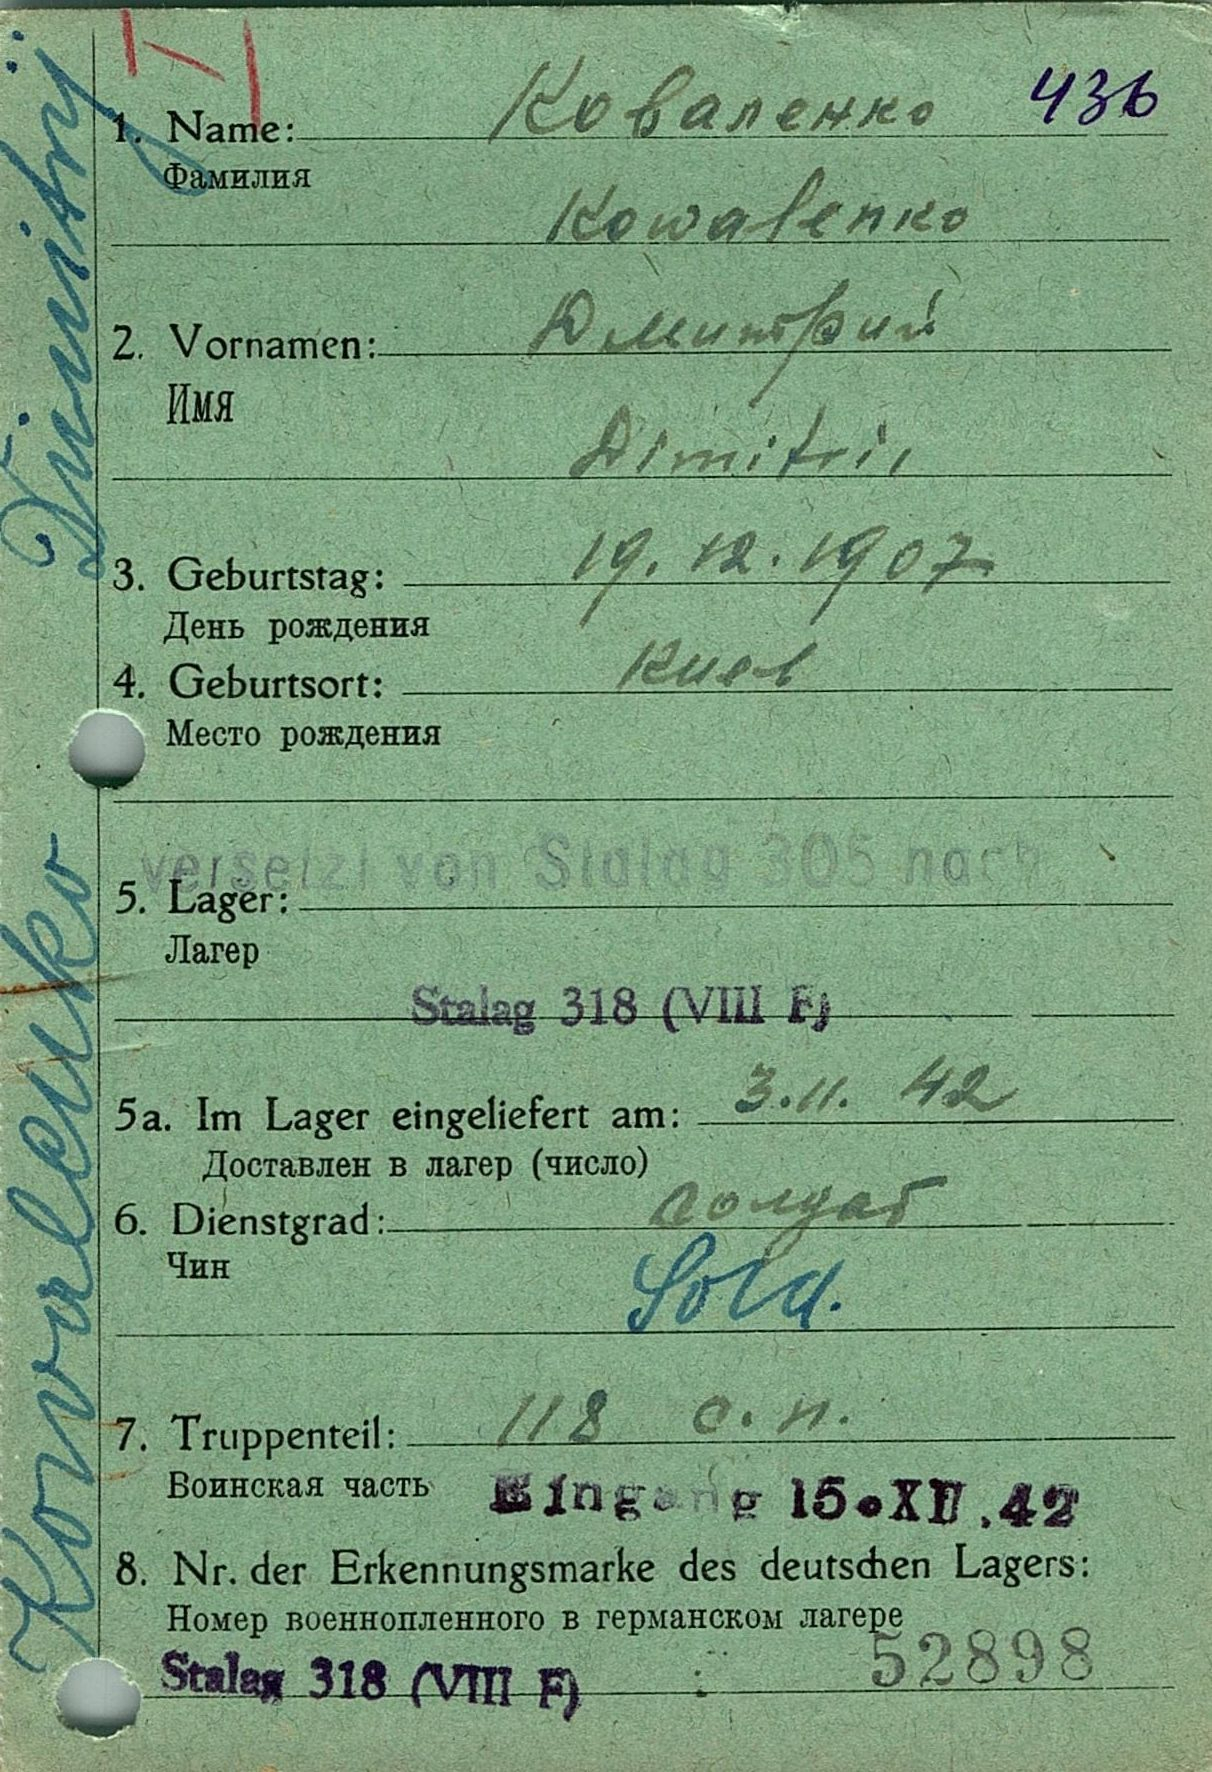 Kowalenko Dimitrij
1. Name: Коваленко 436
Фамилия
Kowalenko
2. Vornamen: Дмитрий
Имя
Dimitri,
3. Geburtstag: 19.12.1907
День рождения
4. Geburtsort: Киев
Место рождения
versetzt von Stalag 305 nach
5. Lager:
Лагер
Stalag 318 (VIII F)
5a. Im Lager eingeliefert am: 3.11. 42
Доставлен в лагер (число)
6. Dienstgrad: солдат
Чин
Sold.
7. Truppenteil: 118 с. п.
Воинская часть Eingang 15.XII.42
8. Nr. der Erkennungsmarke des deutschen Lagers:
Номер военнопленного в германском лагере
Stalag 318 (VIII F) : 52898